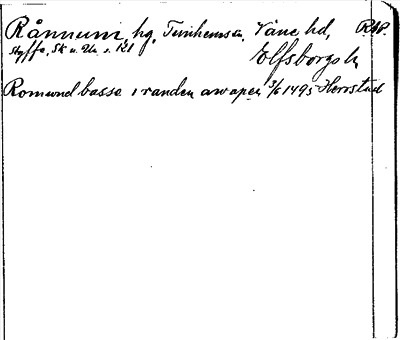 Rånnum, hg. Tunhems sn, Väne hd, RAP.
Styffe, Sk u. Un s. 121 Elfsborgs l.
Romund basse i randen aw apen 3/6 1495 Herrstad